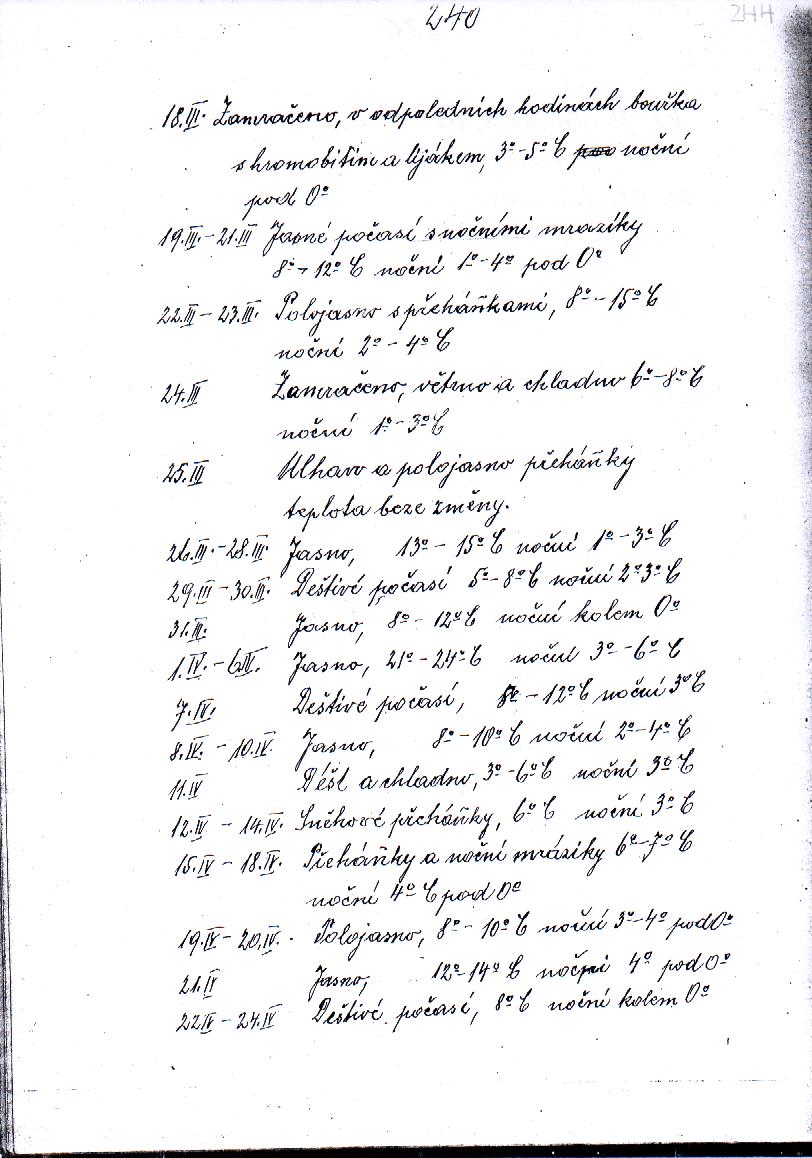 240
244
18.III. Zamračeno, v odpoledních hodinách bouřka
s hromobitím a lijákem, 3º-5º C noční
pod 0º
19.III.-21.III Jasné počasí s nočními mrazíky
8º-12º C noční 1º-4º pod 0º
22.III-23.III. Polojasno s přeháňkami, 8º-15º C
noční 2º-4º C
24.III Zamračeno, větrno a chladno 6º-8º C
noční 1º-3º C
25.III Mlhavo a polojasno přeháňky
teplota beze změny.
26.III.-28.III. Jasno, 13º-15º C noční 1º-3º C
29.III-30.III. Deštivé počasí 5º-8º C noční 2º3º C
31.III. Jasno, 8º-12º C noční kolem 0º
1.IV.-6.IV. Jasno, 21º-24º C noční 3º-6º C
7.IV. Deštivé počasí, 8º-12º C noční 3º C
8.IV.-10.IV. Jasno, 8º-10º C noční 2º-4º C
11.IV Déšť a chladno, 3º-6º C noční 3º C
12.IV-14.IV. Sněhové přeháňky, 6º C noční 3º C
15.IV-18.IV. Přeháňky a noční mrazíky 6º-7º C
noční 4º C pod 0º
19.IV-20.IV. Polojasno, 8º-10º C noční 3º-4º pod 0º
21.IV Jasno, 12º-14º C noční 4º pod 0º
22IV-24.IV Deštivé počasí, 8º C noční kolem 0º